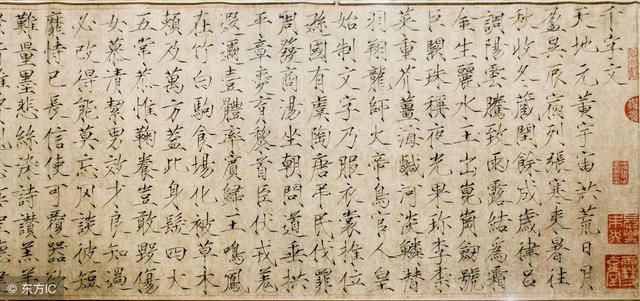 千字文
天地元黃宇宙洪荒日月
盈昃辰宿列張寒來暑往
秋收冬藏閏餘成歲律呂
調陽雲騰致雨露結為霜
金生麗水玉出崑崗劍號
巨闕珠稱夜光果珍李柰
菜重芥薑海鹹河淡鱗潛
羽翔龍師火帝鳥官人皇
始制文字乃服衣裳推位
遜國有虞陶唐弔民伐罪
周發商湯坐朝問道垂拱
平章愛育黎首臣伏戎羌
遐邇壹體率賓歸王鳴鳳
在竹白駒食場化被草木
賴及萬方蓋此身髮四大
五常恭惟鞠養豈敢毀傷
女慕清絜男效才良知過
必改得能莫忘罔談彼短
靡恃己長信使可覆器欲
難量墨悲絲染詩讚羔羊
© 东方IC